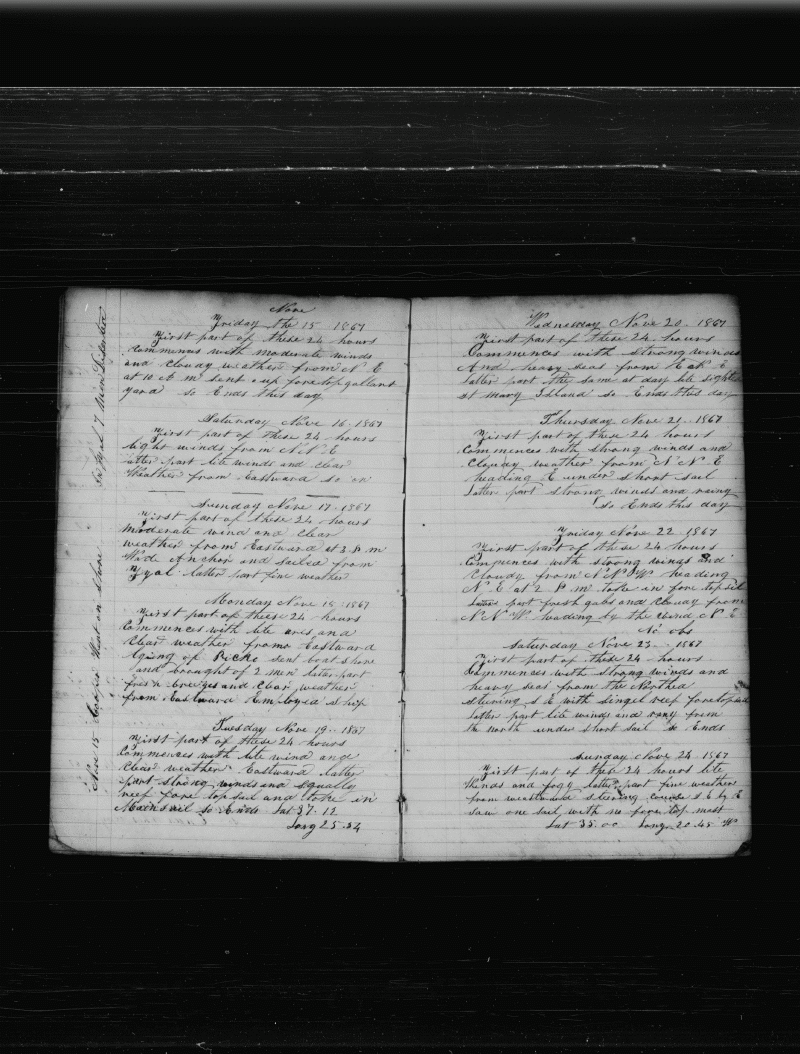 Nove
Friday the 15 1867
First part of these 24 hours
Commences with moderate winds
and cloudy weather from N E
at 10 A m sent up foretopgallant
yard so Ends this day
Saturday Nove 16 1867
First part of these 24 hours
light winds from N E
latter part lite winds and clear
Weather from Eastward so on
Sunday Nove 17 1867
First part of these 24 hours
moderate wind and clear
weather from Eastward at 3 P m
Anchor and sailed from
Fyal latter part fine weather
Monday Nove 18 1867
First part of these 24 hours
Commences with lite and
Clear weather from Eastward
lying of Picko sent boat shore
and brought of 2 men later part
fresh breezes and clear weather
from Eastward Employed ship
Tuesday Nove 19 1867
First part of these 24 hours
Commences with lite wind and
Clear weather Eastward latter
part strong winds and squally
reef fore top sail and toke in
Mainsail so Ends Lat 37.12
Long 25.34
Nove 15 went on shore
7 men
Wednesday Nove 20 1867
First part of these 24 hours
Commences with strong winds
And heavy seas from
latter part the same at day lite sighted
st Mary Island so Ends this day
Thursday Nove 21 1867
First part of these 24 hours
Commences with strong winds and
Cloudy weather from N N E
heading E under short sail
latter part strong winds and rainy
so Ends this day
Friday Nove 22 1867
First part of these 24 hours
Commences with strong winds and
Cloudy from N N W heading
N E at 2 P m toke in fore top sail
latter part fresh gales and cloudy from
N N W heading by the wind N E
No obs
Saturday Nove 23 1867
First part of these 24 hours
Commenses with strong winds and
heavy seas from the Northed
stering s E with singel reef foretopsail
latter part lite winds and from
the north under short sail so Ends
Sunday Nove 24 1867
First part of these 24 hours lite
Winds and fogy latter part fine weather
from westward steering course s E by E
saw one sail with no fore top mast
Lat 35.00 Long 20.45 W